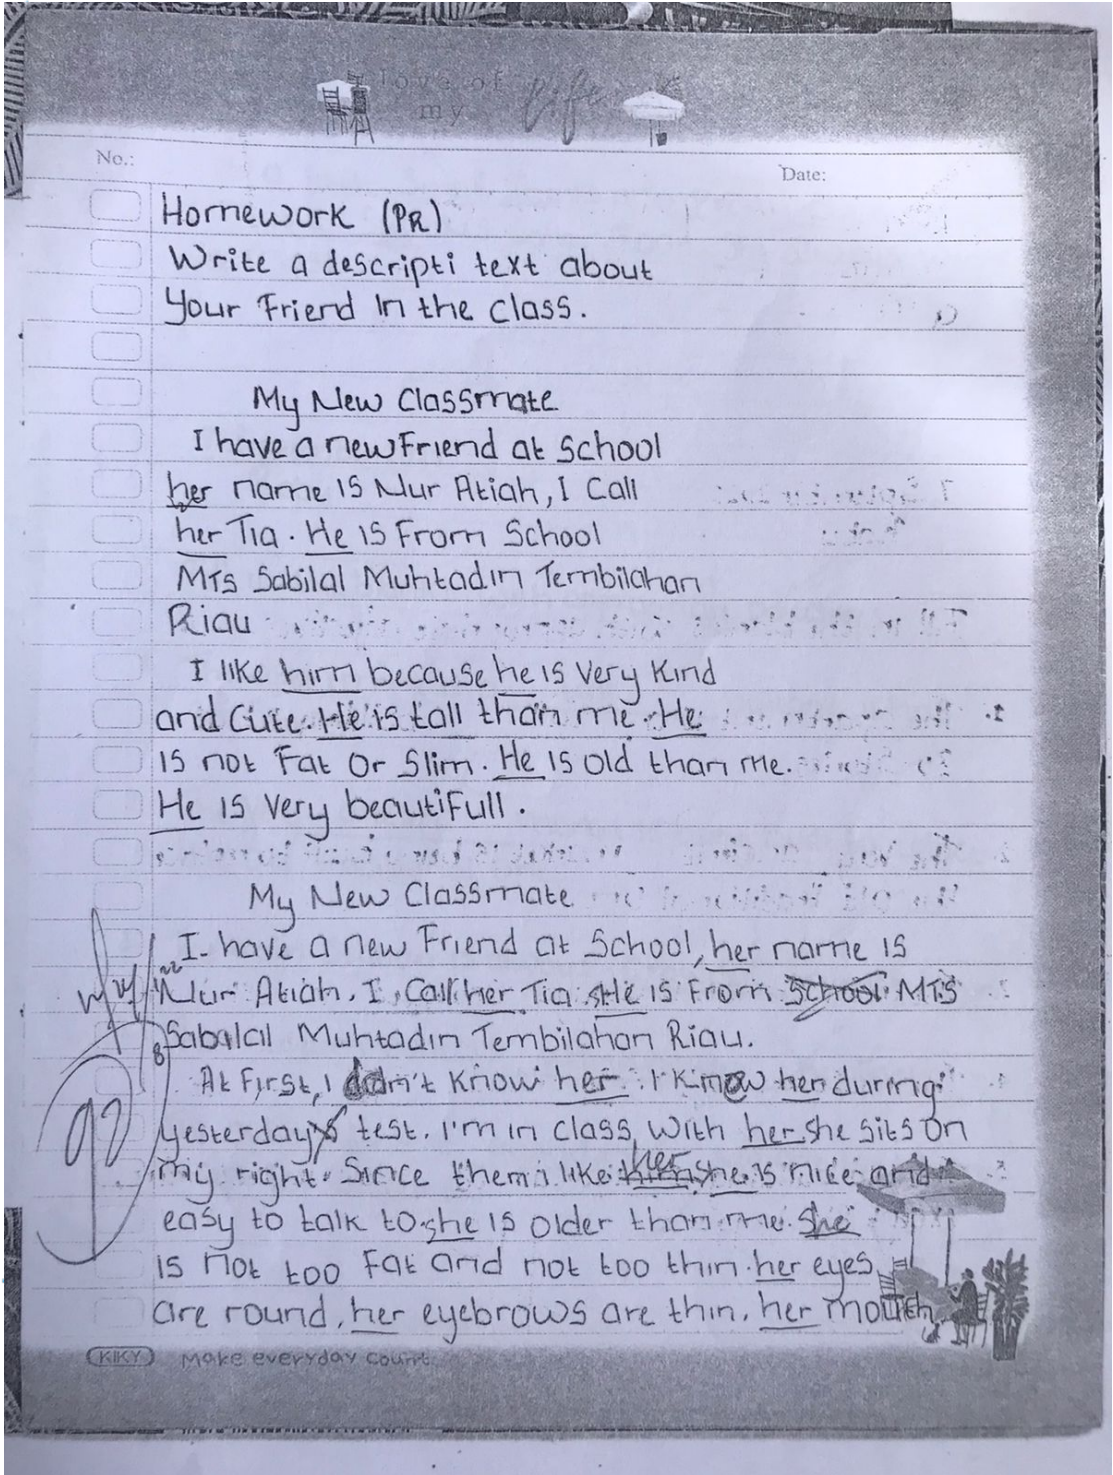 love of
my life
No.:
Date:
Homework (PR)
Write a descripti text about
Your Friend In the class.
My New Classmate
I have a new Friend at School
her name is Nur Atiah, I Call
her Tia. He is From School
MTs Sabilal Muhtadin Tembilahan
Riau
I like him because he is Very Kind
and Cute. He is tall than me. He
is not Fat Or Slim. He is old than me.
He is Very beautiFull.
My New Classmate
I have a new Friend at School, her name is
Nur Atiah. I Call her Tia. He is From School MTs
Sabalal Muhtadin Tembilahan Riau.
At First, I didn't Know her. I Know her during
yesterday's test. I'm in class with her she sits on
my right. Since them i like him her she is nice and
easy to talk to she is older than me. she
is not too Fat and not too thin. her eyes
are round, her eyebrows are thin, her mouth
92
KIKY Make everyday count